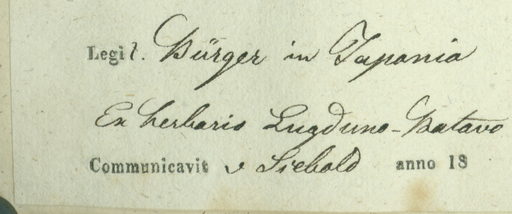 Legit. Bürger in Japonia
Ex herbario Lugduno-Batavo
Communicavit v Siebold anno 18